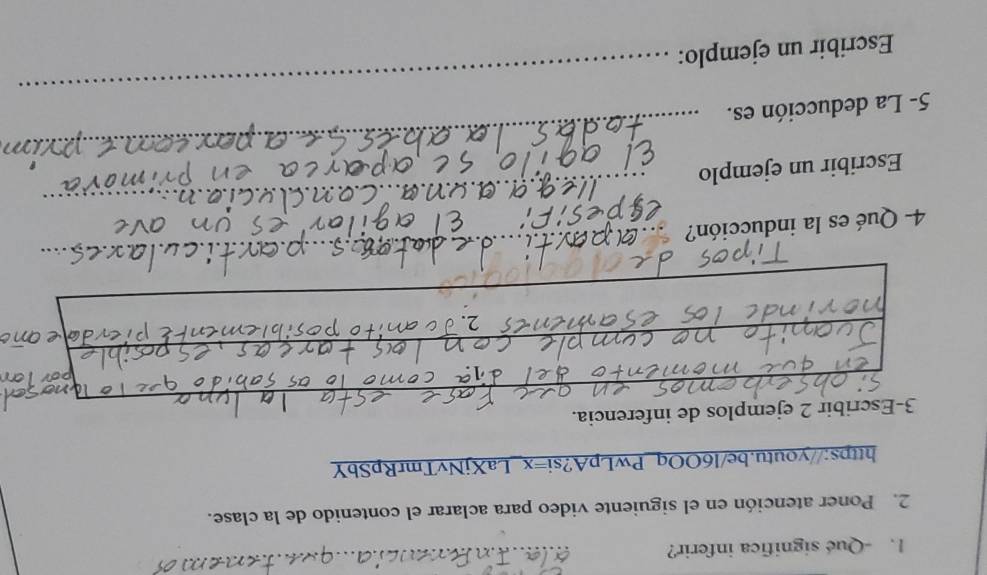 1. -Qué significa inferir? a la Inferencia que tenemos
2. Poner atención en el siguiente video para aclarar el contenido de la clase.
https://youtu.be/l6OOq_PwLpA?si=x_LaXjNvTmrRpSbY
3-Escribir 2 ejemplos de inferencia.
Si obserbamos en que Fase esta la luna
en que momento del dia como lo as sabido que lo
Juanito no cumple con las tareas, es posible
no rinde los esamenes 2. Juanito posiblemente pierda e año
Tipos de
4- Qué es la inducción? a parti de datos particulares
espesifi El agilar es un ave
llega a una conclucion
Escribir un ejemplo El agilo se aparca en primova
todas la abes se a parecen
5- La deducción es.
Escribir un ejemplo: